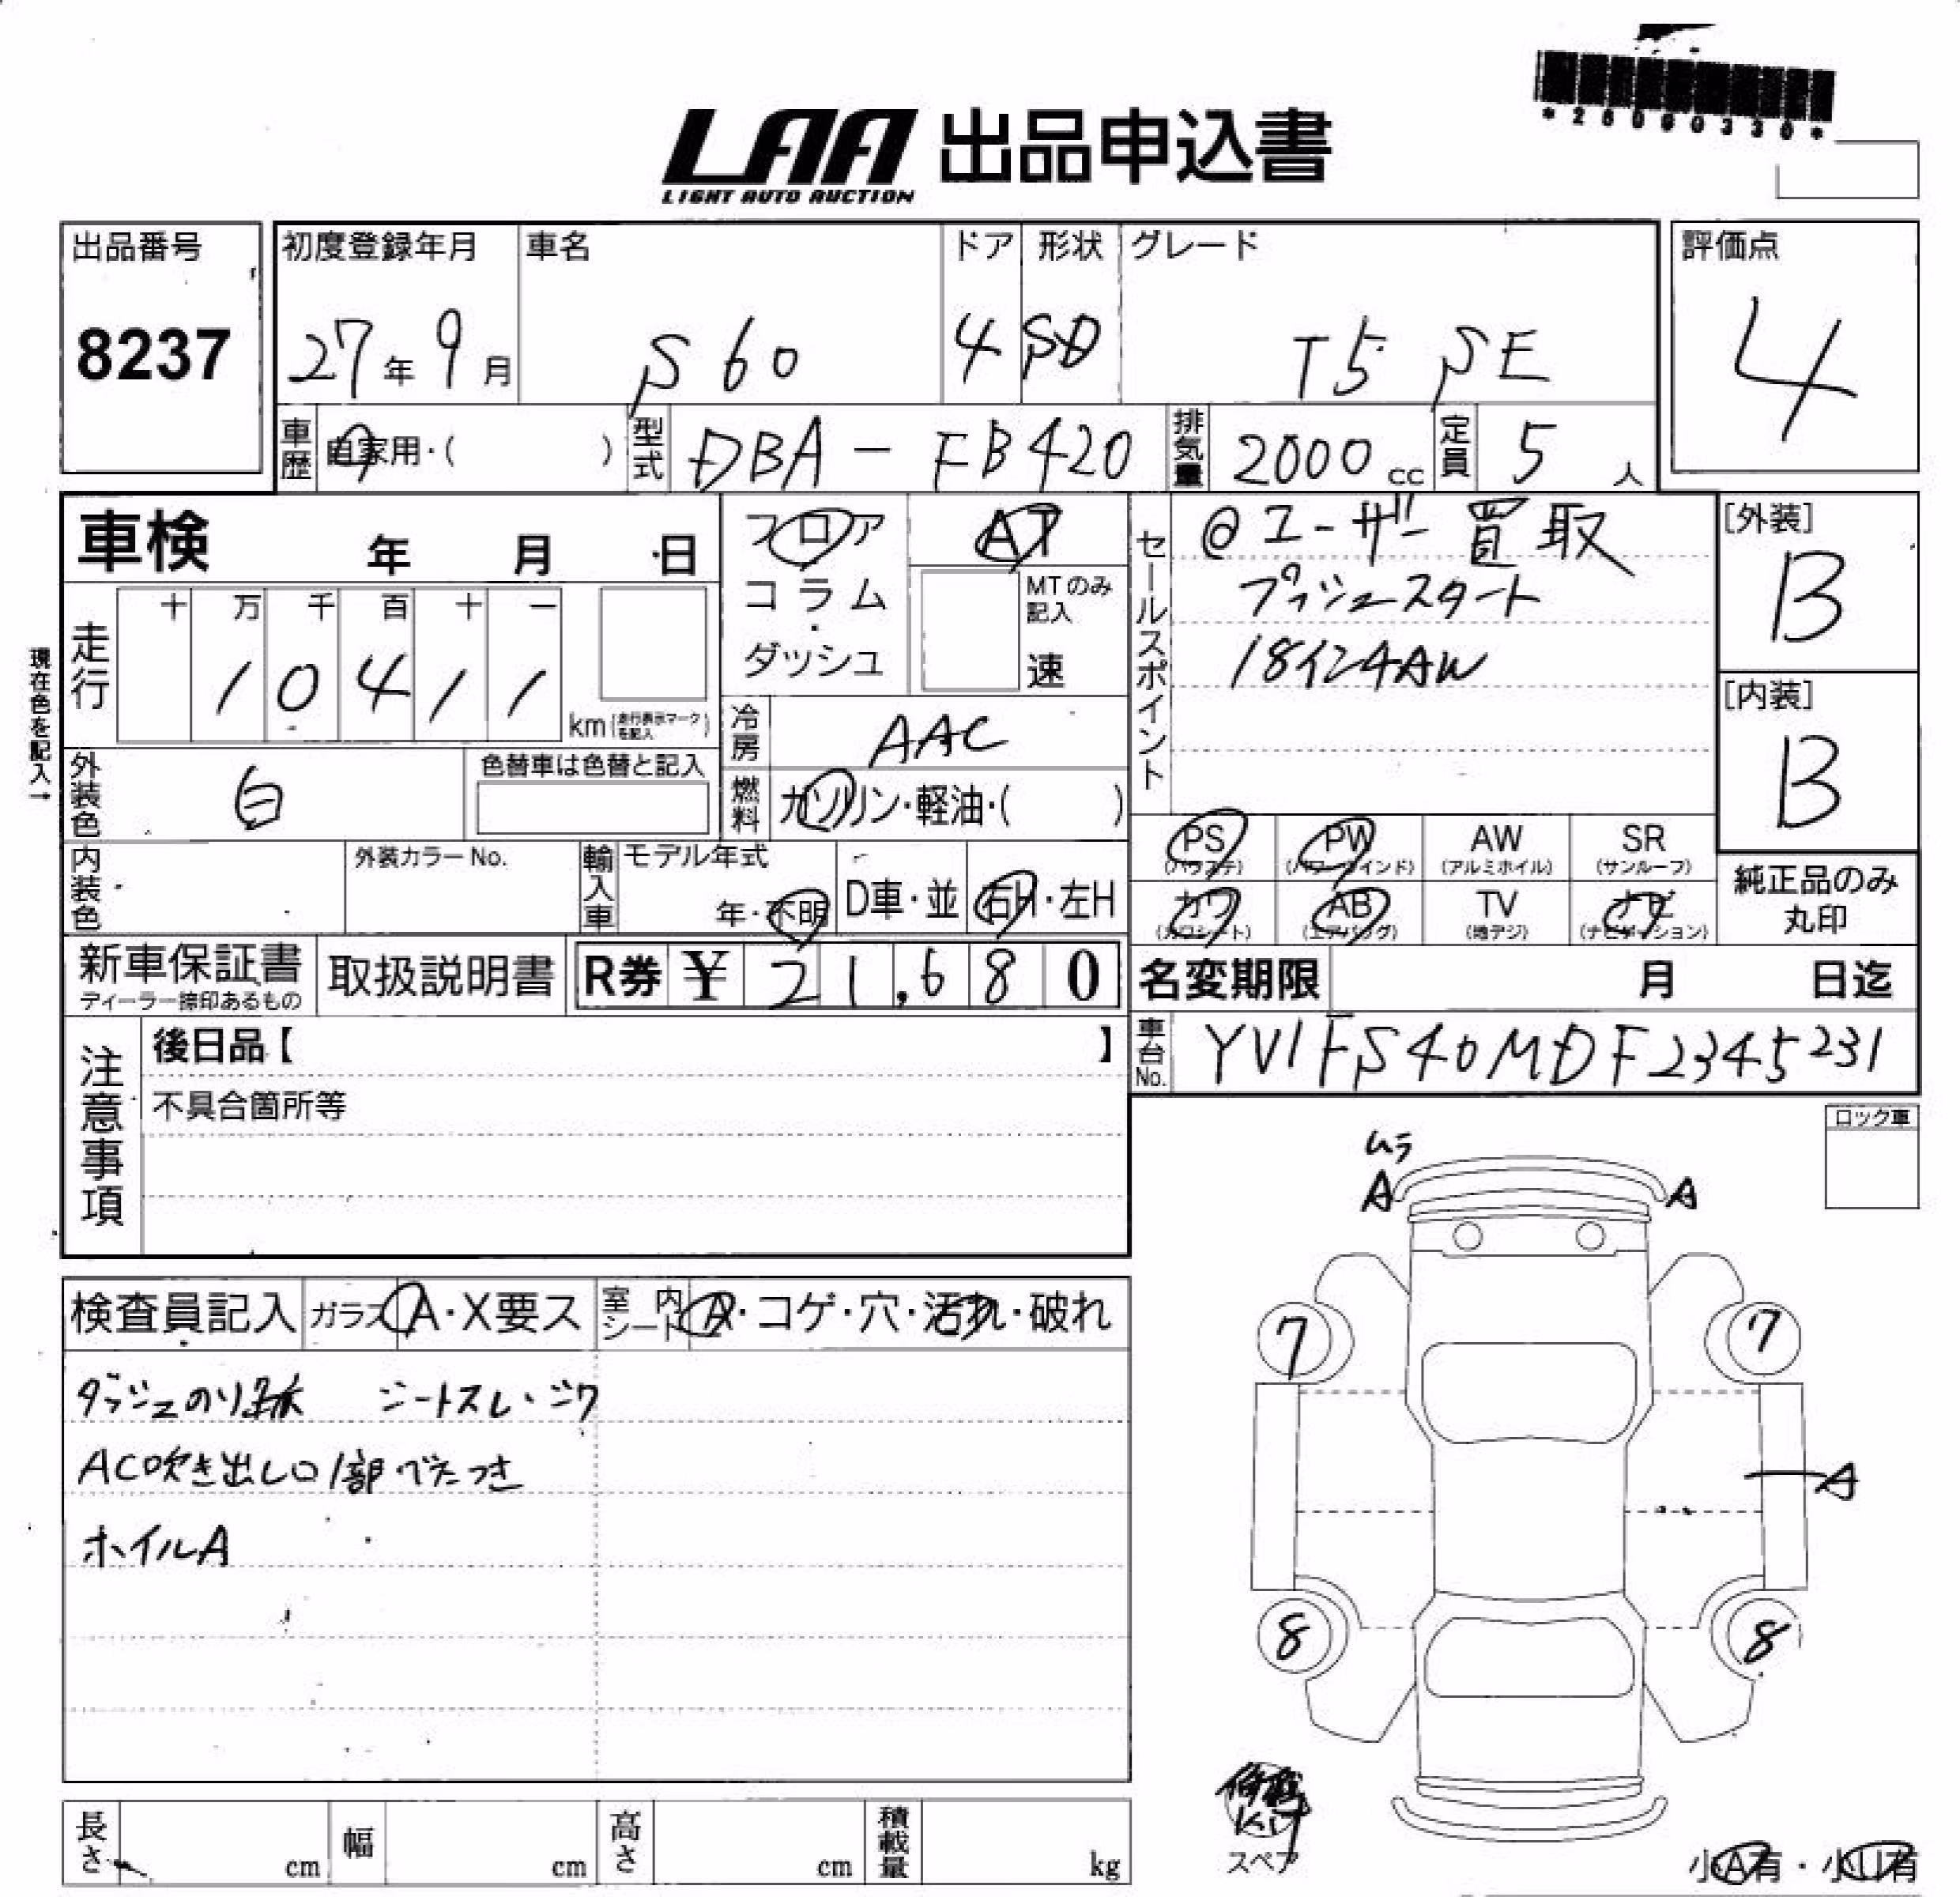 *26080330*
LAA 出品申込書
LIGHT AUTO AUCTION
出品番号
8237
初度登録年月 車名 ドア 形状 グレード
27年 9月 S60 4 SD T5 SE
評価点
4
車歴 自家用・( ) 型式 DBA-FB420 排気量 2000cc 定員 5人
車検 年 月 日
フロア
コラム・
ダッシュ
AT
MTのみ記入
速
セールスポイント
@ユーザー買取
プッシュスタート
18インチAW
[外装]
B
[内装]
B
現在色を記入→
走行 十 万 千 百 十 一
10411 km(走行表示マークを記入)
冷房 AAC
外装色 白 色替車は色替と記入
燃料 ガソリン・軽油・( )
PS (パワステ) PW (パワーウインド) AW (アルミホイル) SR (サンルーフ)
カワ (カワシート) AB (エアバッグ) TV (地デジ) ナビ (ナビゲーション)
純正品のみ
丸印
内装色 外装カラーNo. 輸入車 モデル年式 年・不明 D車・並 右H・左H
新車保証書 ディーラー捺印あるもの 取扱説明書 R券 ¥ 21,680
名変期限 月 日迄
車台No. YV1FS40MDF2345231
注意事項
後日品【 】
不具合箇所等
ロック車
ムラ
A A
検査員記入 ガラス A・X要ス 室内シート A・コゲ・穴・汚れ・破れ
7 7
ダッシュのり跡 シートスレ・シワ
AC吹き出し口1部べたつき
A
ホイルA
8 8
修理
Kit
スペア
長さ cm 幅 cm 高さ cm 積載量 kg
小A有・小U有